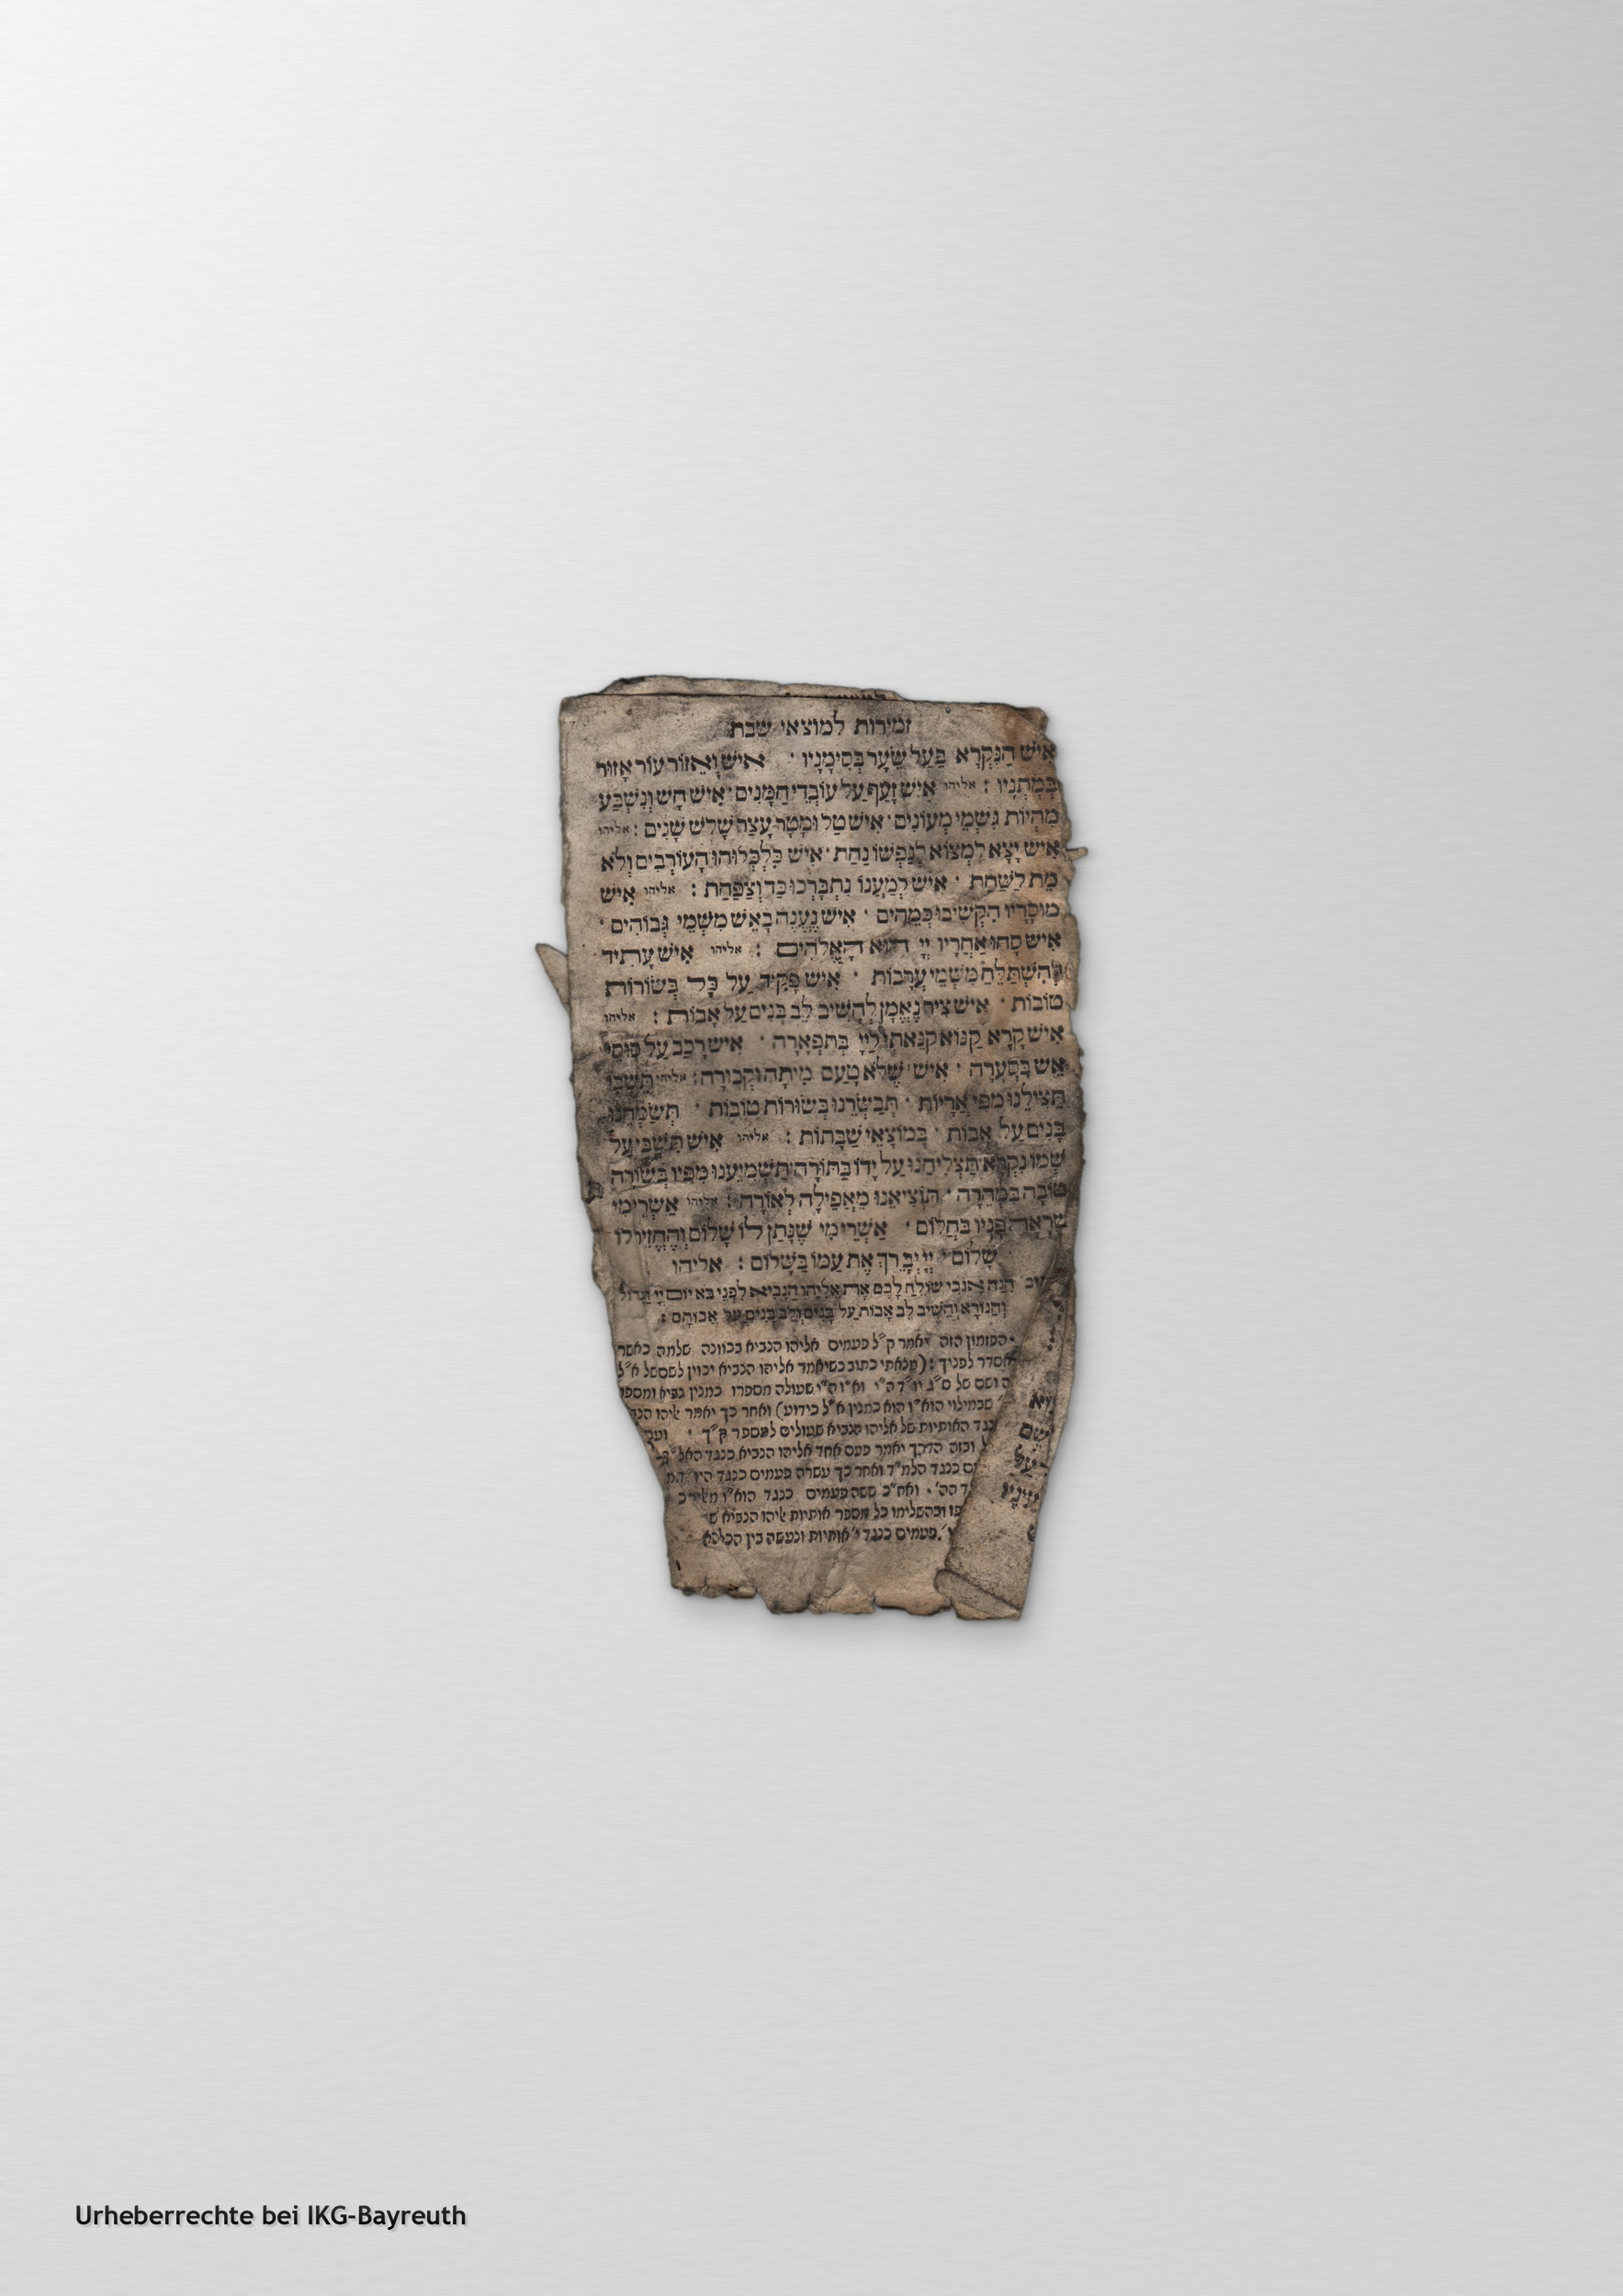 זמירות למוצאי שבת
אִישׁ הַנִּקְרָא בַּעַל שֵׂעָר בְּסִימָנָיו · אִישׁ וְאֵזוֹר עוֹר אָזוּר
בְּמָתְנָיו : אליהו אִישׁ זָעַף עַל עוֹבְדֵי חַמָּנִים · אִישׁ חָשׁ וְנִשְׁבַּע
מִהְיוֹת גִּשְׁמֵי מְעוֹנִים · אִישׁ טַל וּמָטָר עָצַר שָׁלֹשׁ שָׁנִים : אליהו
אִישׁ יָצָא לִמְצוֹא לְנַפְשׁוֹ נַחַת · אִישׁ כִּלְכְּלוּהוּ הָעוֹרְבִים וְלֹא
מֵת לַשַּׁחַת · אִישׁ לְמַעֲנוֹ נִתְבָּרְכוּ כַּד וְצַפַּחַת : אליהו אִישׁ
מוּסָרָיו הִקְשִׁיבוּ כְּמֵהִים · אִישׁ נַעֲנָה בָאֵשׁ מִשְּׁמֵי גְּבוֹהִים ·
אִישׁ סָחוּ אַחֲרָיו יְיָ הוּא הָאֱלֹהִים : אליהו אִישׁ עָתִיד
לְהִשְׁתַּלֵּחַ מִשְּׁמֵי עֲרָבוֹת · אִישׁ פָּקִיד עַל כָּל בְּשׂוֹרוֹת
טוֹבוֹת · אִישׁ צִיר נֶאֱמָן לְהָשִׁיב לֵב בָּנִים עַל אָבוֹת : אליהו
אִישׁ קָרָא קַנּוֹא קִנֵּאתִי לַיְיָ בְּתִפְאָרָה · אִישׁ רָכַב עַל סוּסֵי
אֵשׁ בִּסְעָרָה · אִישׁ שֶׁלֹּא טָעַם מִיתָה וּקְבוּרָה : אליהו תִּשְׁבִּי
תַּצִּילֵנוּ מִפִּי אֲרָיוֹת · תְּבַשְּׂרֵנוּ בְּשׂוֹרוֹת טוֹבוֹת · תְּשַׂמְּחֵנוּ
בָּנִים עַל אָבוֹת · בְּמוֹצָאֵי שַׁבָּתוֹת : אליהו אִישׁ תִּשְׁבִּי עַל
שְׁמוֹ נִקְרָא · תַּצְלִיחֵנוּ עַל יָדוֹ בַּתּוֹרָה · תַּשְׁמִיעֵנוּ מִפִּיו בְּשׂוֹרָה
טוֹבָה בִּמְהֵרָה · תּוֹצִיאֵנוּ מֵאֲפֵילָה לְאוֹרָה : אליהו אַשְׁרֵי מִי
שֶׁרָאָה פָנָיו בַּחֲלוֹם · אַשְׁרֵי מִי שֶׁנָּתַן לוֹ שָׁלוֹם וְהֶחֱזִיר לוֹ
שָׁלוֹם · יְיָ יְבָרֵךְ אֶת עַמּוֹ בַּשָּׁלוֹם : אליהו
הִנֵּה אָנֹכִי שׁוֹלֵחַ לָכֶם אֵת אֵלִיָּהוּ הַנָּבִיא לִפְנֵי בֹּא יוֹם יְיָ הַגָּדוֹל
וְהַנּוֹרָא וְהֵשִׁיב לֵב אָבוֹת עַל בָּנִים וְלֵב בָּנִים עַל אֲבוֹתָם :
הפזמון הזה יאמר ק"ל פעמים אליהו הנביא בכוונה שלמה כאשר
אסדר לפניך : (מצאתי כתוב כשיאמר אליהו הנביא יכוין לשם של א"ל
ושם של ס"ג יו"ד ה"י וא"ו ה"י שעולה מספרו כמנין נביא ומספר
שבמילוי הוא"ו הוא כמנין א"ל כידוע) ואחר כך יאמר אליהו
כנגד האותיות של אליהו הנביא שעולים למספר ק"ך ·
ובזה הדרך יאמר פעם אחד אליהו הנביא כנגד האל"ף
כנגד הלמ"ד ואחר כך עשרה פעמים כנגד היו"ד
הה' · ואח"כ ששה פעמים כנגד הוא"ו
ובהשלימו כל מספר אותיות אליהו הנביא
פעמים כנגד י' אותיות ונעשה בין הכל
שם
על
Urheberrechte bei IKG-Bayreuth